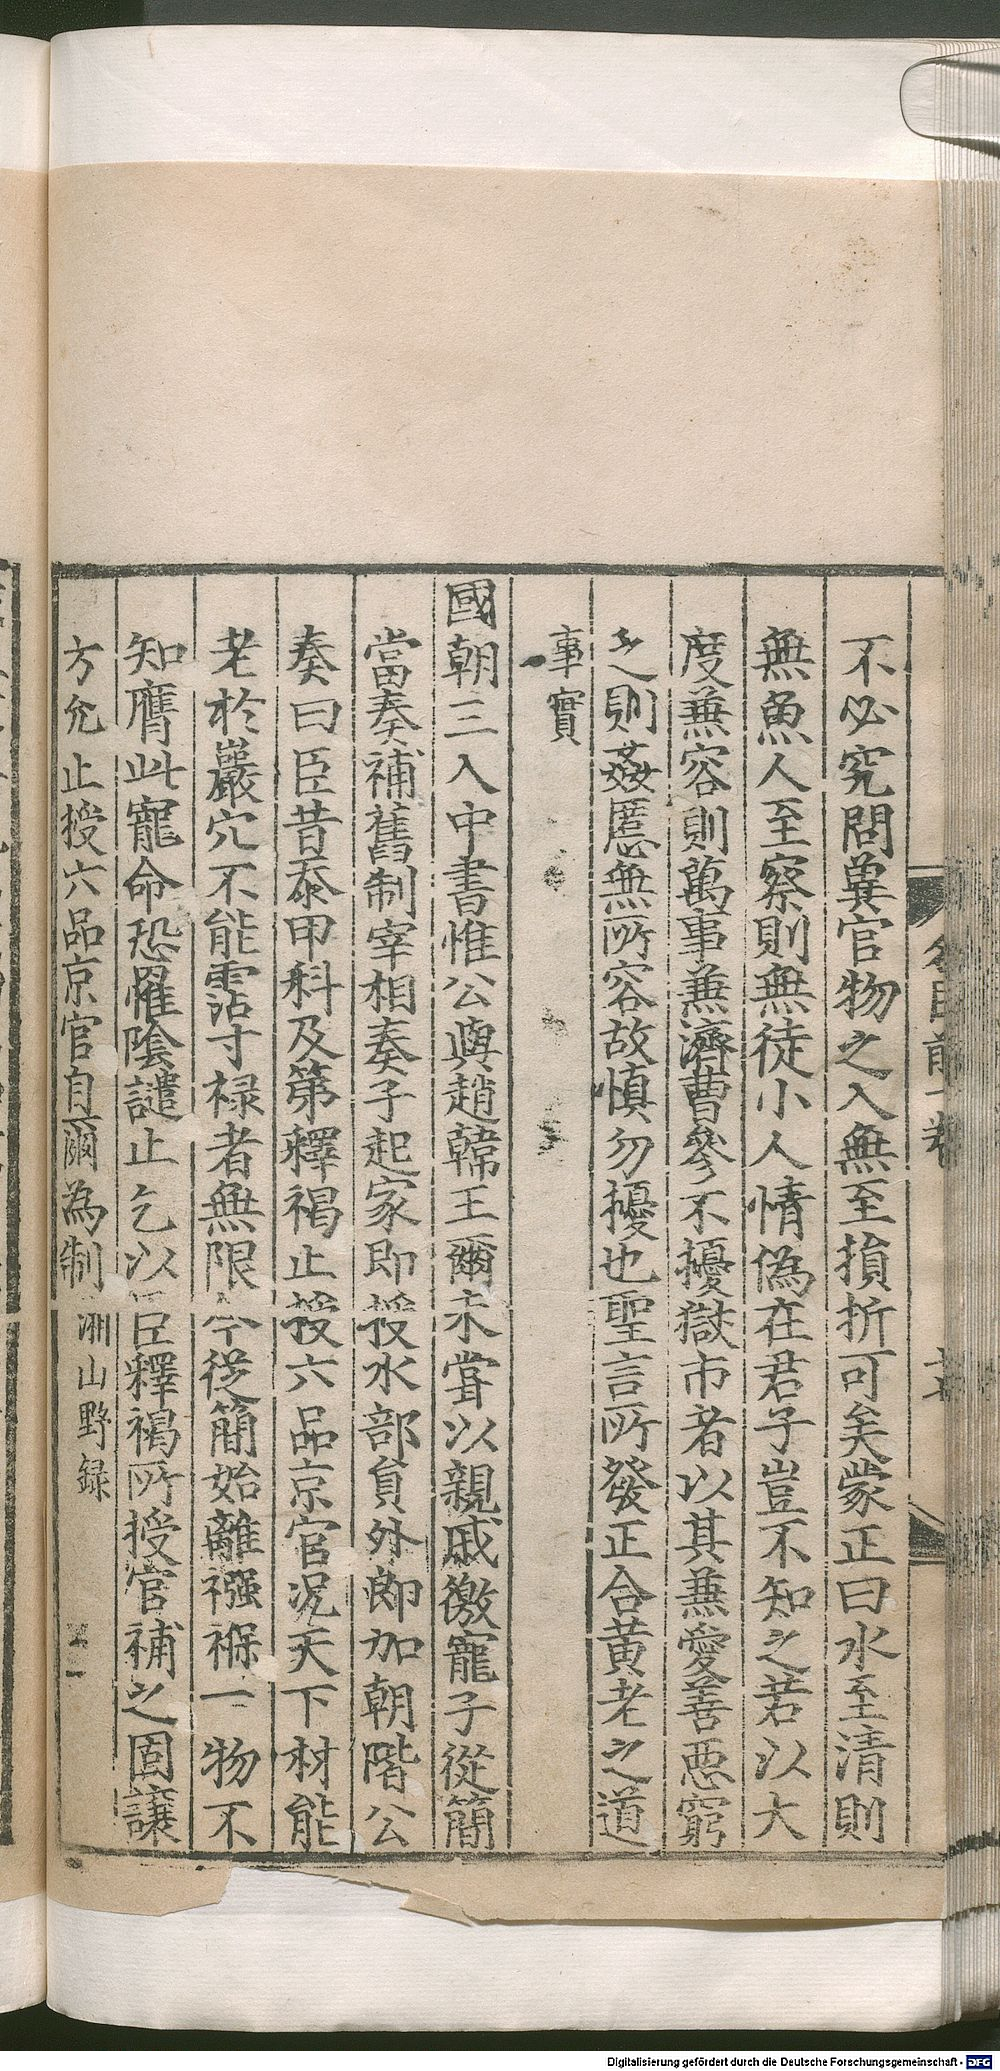 不必究問兾官物之入無至損折可矣蒙正曰水至清則
無魚人至察則無徒小人情偽在君子豈不知之若以大
度兼容則萬事兼濟曹參不擾獄市者以其兼愛善惡窮
之則姦慝無所容故慎勿擾也聖言所發正合黄老之道
事實
國朝三入中書惟公與趙韓王爾未嘗以親戚徼寵子從簡
當奏補舊制宰相奏子起家即授水部員外郎加朝階公
奏曰臣昔忝甲科及第釋褐止授六品京官况天下材能
老於巖穴不能霑寸禄者無限今從簡始離襁褓一物不
知膺此寵命恐罹隂譴止乞以臣釋褐所授官補之固讓
方允止授六品京官自爾為制
湘山野録
Digitalisierung gefördert durch die Deutsche Forschungsgemeinschaft - DFG